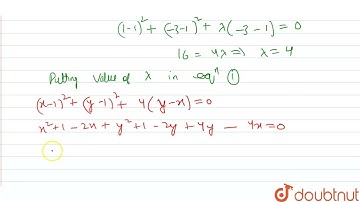 (1-1)² + (-3-1)² + λ(-3-1) = 0
16 = 4λ ⇒ λ = 4
Putting value of λ in eqⁿ ①
(x-1)² + (y-1)² + 4(y-x) = 0
x² + 1 - 2x + y² + 1 - 2y + 4y - 4x = 0
doubtnut